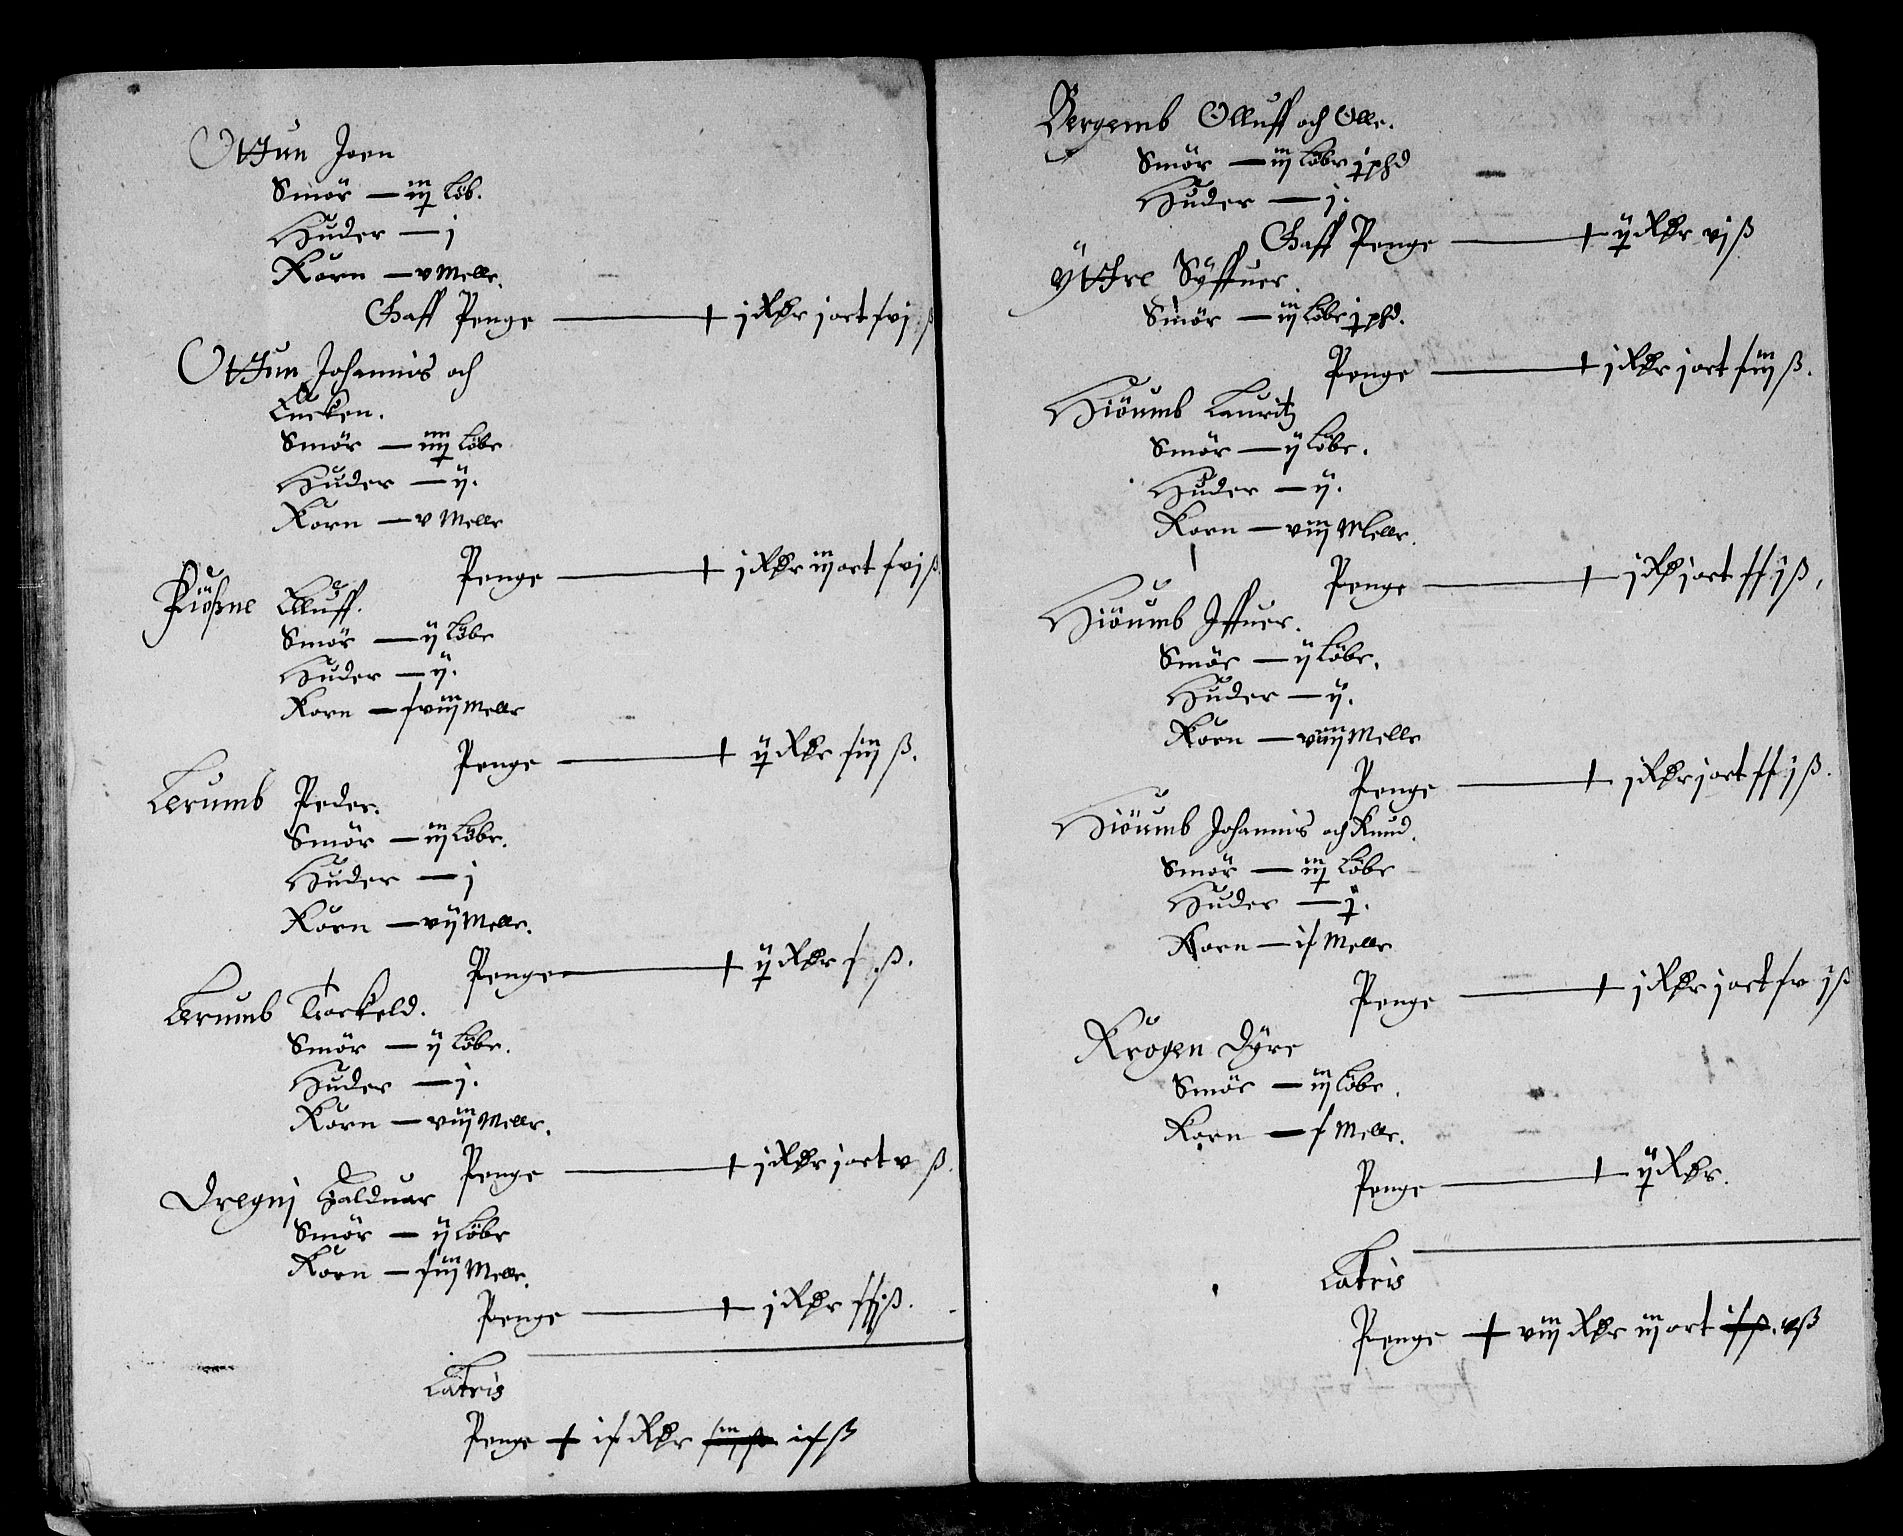 Ottun Joen
Smör — iij Löb.
Huder — j
Korn — v Melle.
Gaff Penge — j Rdr j ort xvj ß
Ottun Johannis och
Encken.
Smör — iiij Löbe
Huder — ij.
Korn — v Melle
Penge — j Rdr iij ort xvj ß
Elluff.
Smör — ij Löbe
Huder — ij.
Korn — xviij Melle
Penge — ij Rdr xiij ß.
Lerumb Peder.
Smör — iij Löbe.
Huder — j
Korn — vij Melle.
Penge — ij Rdr x ß.
Lerumb Torkeld.
Smör — ij Löbe.
Huder — j.
Korn — viij Melle.
Penge — j Rdr j ort v ß.
Dregnj Halduar
Smör — ij Löbe
Korn — xiij Melle.
Penge — j Rdr xxj ß.
Lateris
Penge ix Rdr ix ß
Bergemb Olluff och Olle.
Smör — iij Löbe j pd
Huder — j.
Gaff Penge — ij Rdr vj ß
Ÿttre Sÿffuer.
Smör — iij Löbe j pd.
Penge — j Rdr j ort xiij ß.
Hiöumb Lauritz
Smör — ij Löbe.
Huder — ij.
Korn — viij Melle.
Penge — j Rd j ort xxj ß.
Hiöumb Iffuer.
Smör — ij Löbe.
Huder — ij.
Korn — viij Melle
Penge — j Rdr j ort xxj ß.
Hiöumb Johannis och Knud.
Smör — iij Löbe
Huder — j.
Korn — ix Melle
Penge — j Rdr j ort xv j ß
Krogen Dÿre
Smör — iij Löbe.
Korn — x Melle.
Penge — ij Rdr.
Lateris
Penge viij Rdr iij ort ix ß. v ß